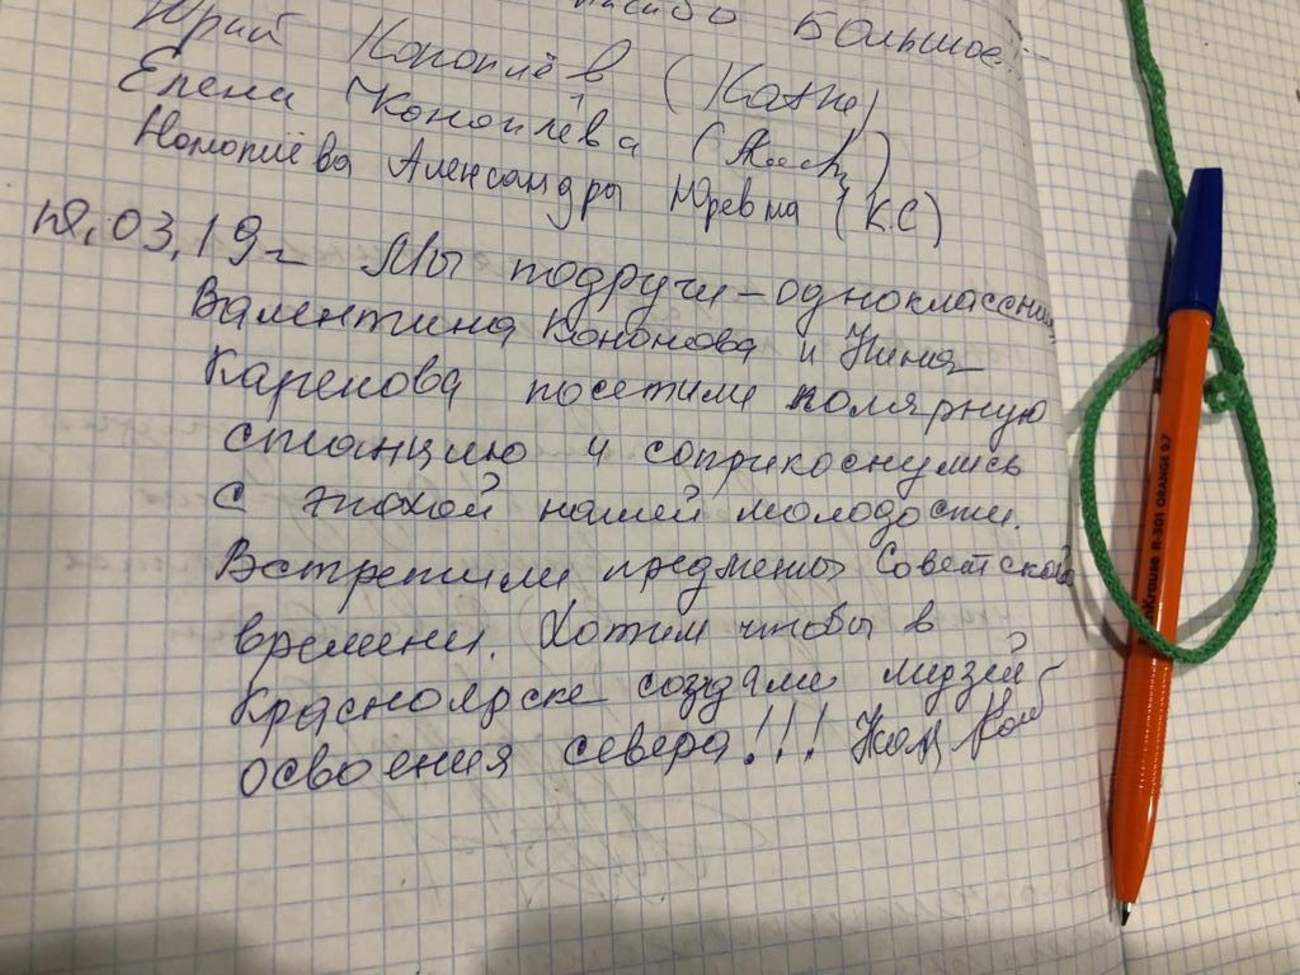 Большое
Юрий Коноплёв
Елена Коноплёва
Коноплёва Александра Юревна (К.С)
03.19г Мы подруги-одноклассниц
Валентина Кононова и Нина
Карелова посетили полярную
станцию и соприкоснулись
с эпохой нашей молодости.
Встретили предметы Советской
времени. Хотим чтобы в
Красноярске создали музей
освоения севера!!!
Krause R-301 ORANGE 0.7